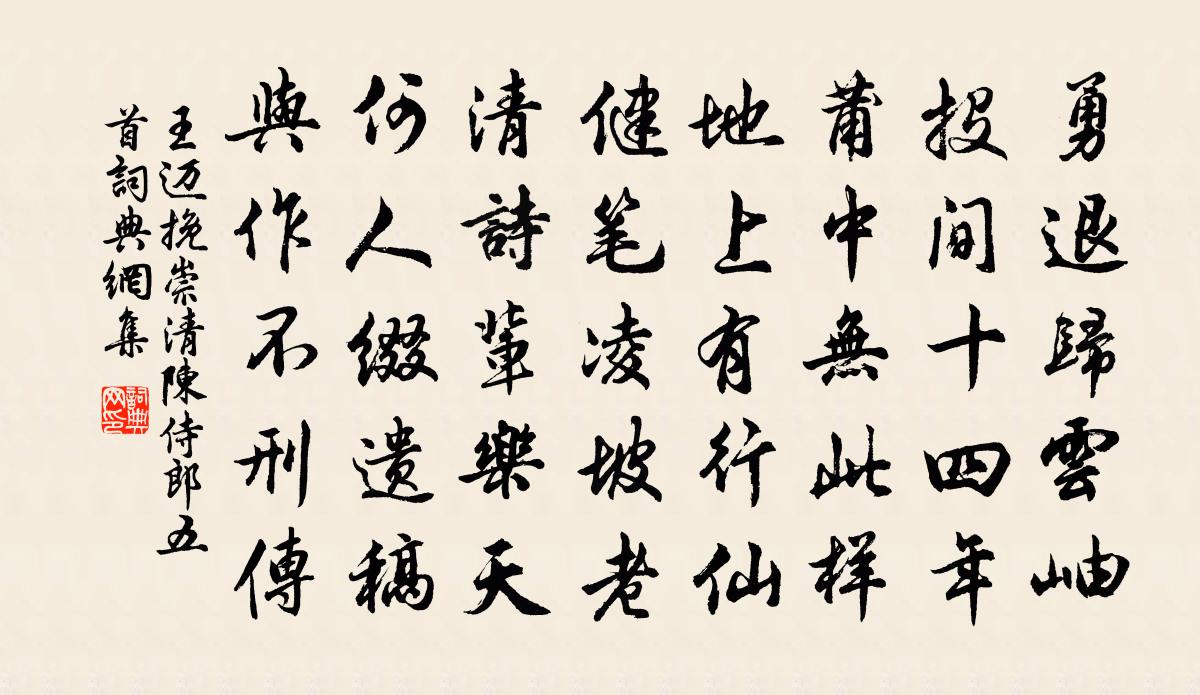 勇退歸雲岫
投间十四年
莆中無此样
地上有行仙
健笔凌坡老
清詩輩樂天
何人缀遗稿
與作不刊傳
王迈挽崇清陳侍郎五
首詞典網集
詞典
网印